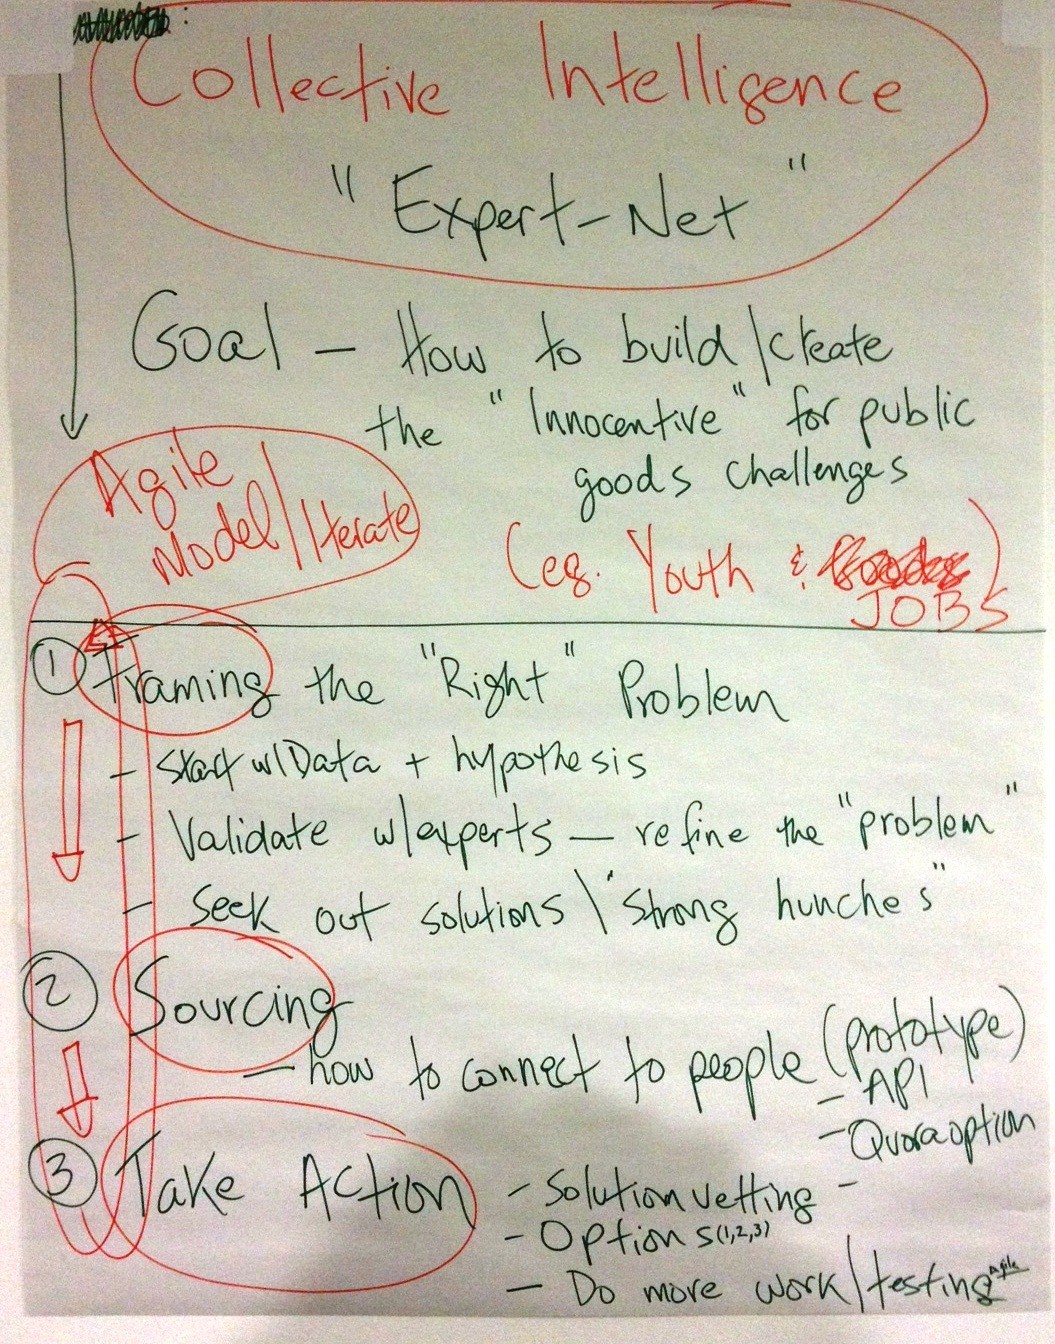 Collective Intelligence
" Expert-Net "
Goal – How to build/create
the "Innocentive" for public
goods challenges
Agile
Model/Iterate
(eg. Youth &
JOBS)
① Framing the "Right" Problem
- start w/Data + hypothesis
- Validate w/experts — refine the "problem"
- Seek out solutions \ "strong hunches"
② Sourcing
- how to connect to people (prototype)
- API
- Quora option
③ Take Action
- Solution vetting -
- Options (1,2,3)
- Do more work/testing Agile